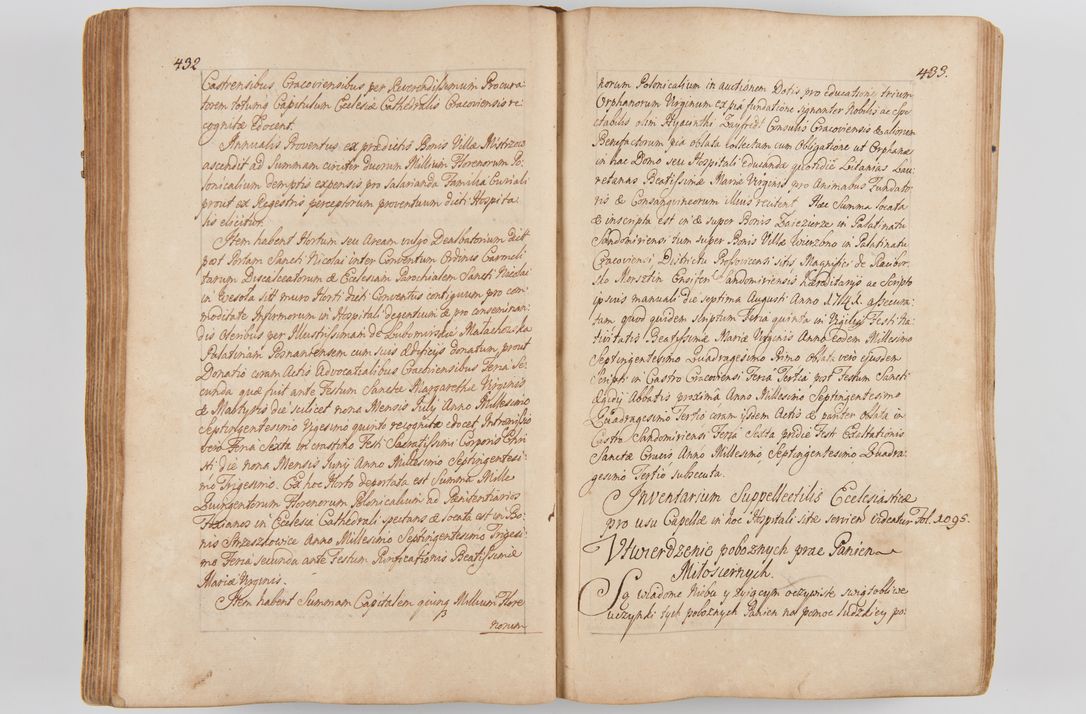 432
Castrensibus Cracoviensibus per Reverendissimum Procura
torem totums Capitulum Ecclesiæ Cathedralis Cracoviensis re:
cognitæ edocent.
Annualis Proventus ex prædictis Bonis Villæ Mistrzowice
ascendit ad Summam circiter duorum Millium Florenorum Po:
lonicalium demptis expensis pro Salarianda Familia Curiali
prout ex Regestris perceptorum proventuum dicti Hospita
lis elicitur.
Item habent Hortum seu Aream vulgo Dealbatorium dict
post Portam Sancti Nicolai inter Conventum Ordinis Carmeli
tarum Discalceatorum & Ecclesiam Parochialem Sancti Nicolai
in Vesola sitt muro Horti dicti Conventus contiguum pro com
moditate Infirmorum in Hospitali degentium & pro conseminan:
dis Oleribus per Illustrissimam de Lubomirskie Małachowska
Palatinam Posnaniensem cum suis Ædificiis donatum, prout
Donatio coram Actis Advocatialibus Cracoviensibus Feria Se:
cunda quæ fuit ante Festum Sanctæ Margarethæ Virginis
& Martyris die scilicet nona Mensis July Anno Millesimo
Septingentesimo Vigesimo quinto recognita edocet, Intromissio
vero Feria Sexta in crastino Festi Sacratissimi Corporis Chri
sti die nona Mensis Juny Anno Millesimo Septingentesi:
mo Trigesimo. Ex hoc Horto deportata est Summa Mille
Quingentorum Florenorum Polonicalium ad Penitentiarios
in Ecclesia Cathedrali spectans & locata est in Bo:
nis Strzeszkowice Anno Millesimo Septingentesimo Trigesi
mo Feria secunda ante Festum Purificationis Beatissimæ
Mariæ Virginis.
Item habent Summam Capitalem quinq Millium Flore
norum
433.
norum Polonicalium in auctionem Dotis pro educatione trium
Orphanorum Virginum ex pia fundatione signanter Nobilis ac Spe
ctabilis olim Hyacinthi Zayfridt Consulis Cracoviensis & aliorum
Benefactorum pia oblata collectam cum Obligatione ut Orphanæ
in hac Domo seu Hospitali educandæ quotidie Litanias Lau
retanas Beatissimæ Mariæ Virginis pro Animabus Fundato
ris & Consanguineorum illius recitent. Hæc Summa locata
& inscripta est in & super Bonis Zarzierze in Palatinatu
Sandomiriensi tum super Bonis Villæ Wierzbno in Palatinatu
Cracoviensi Districtu Proszovicensi sitis Magnifici de Racibor
sko Morsztin Ensiferi Sandomiriensis Hæreditarys ac Scripto
ipsius manuali die septima Augusti Anno 1741. assecura:
tum quod quidem scriptum Feria quinta in Vigilia Festi Na
tivitatis Beatissimæ Mariæ Virginis Anno Eodem Millesimo
Septingentesimo Quadragesimo Primo oblati vero ejusdem
Scripti in Castro Cracoviensi Feria Tertia post Festum Sancti
Egidy Abbatis proxima Anno Millesimo Septingentesimo
Quadragesimo Tertio coram ijsdem Actis & pariter oblata in
Castro Sandomiriensi Feria Sexta pridie Festi Exaltationis
Sanctæ Crucis Anno Millesimo Septingentesimo Quadra:
gesimo Tertio subsecuta.
Inventarium Suppellectilis Ecclesiasticæ
pro usu Capellæ in hoc Hospitali sitæ servien videatur Fol. 1095.
Utwierdzenie poboznych prac Panien
Miłosiernych.
Są wiadome Niebu y żyiącym oczywiste swiątobliwe
uczynki tych poboznych Panien na pomoc ludzkiey po: